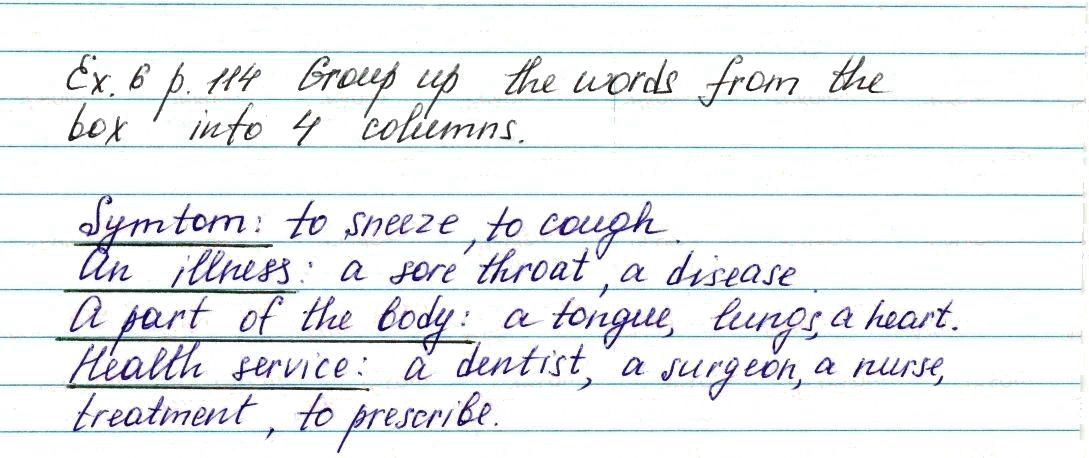 Ex. 6 p. 114 Group up the words from the
box into 4 columns.
Symtom: to sneeze, to cough.
An illness: a sore throat, a disease.
A part of the body: a tongue, lungs, a heart.
Health service: a dentist, a surgeon, a nurse,
treatment, to prescribe.